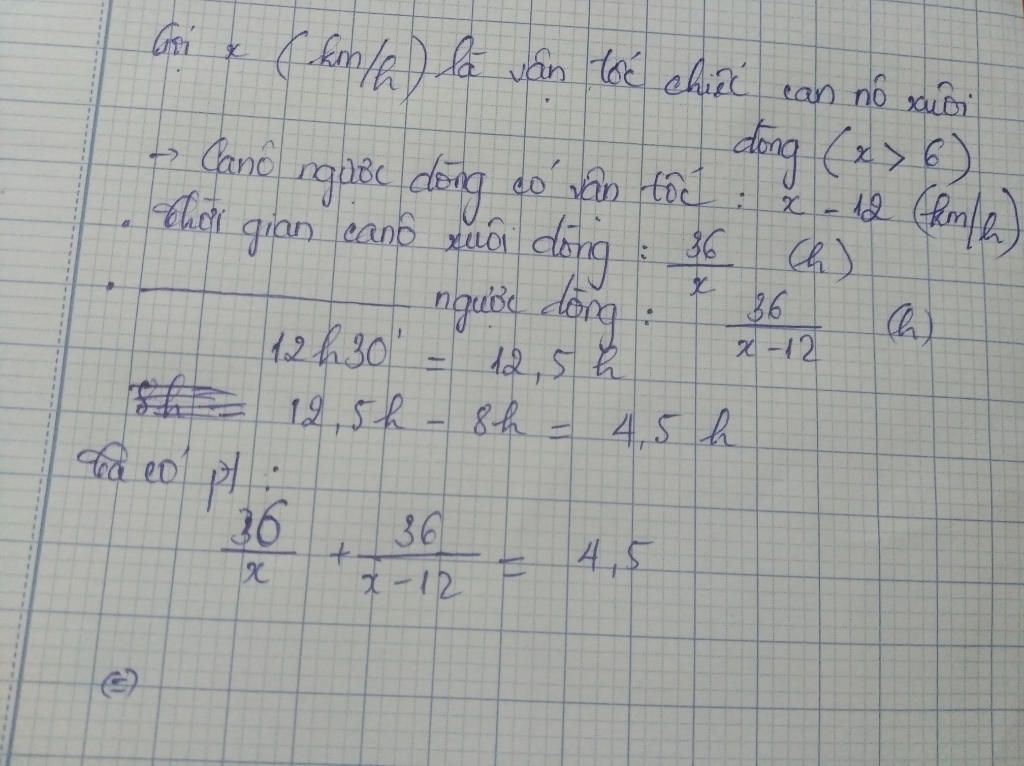 Gọi x (km/h) là vận tốc chiếc can nô xuôi
dòng (x > 6)
→ Canô ngược dòng có vân tốc : x - 12 (km/h)
. Thời gian canô xuôi dòng : 36/x (h)
. ———— ngược dòng : 36/(x-12) (h)
12h30' = 12,5 h
8h = 12,5h - 8h = 4,5 h
Ta có pt :
36/x + 36/(x-12) = 4,5
(=)